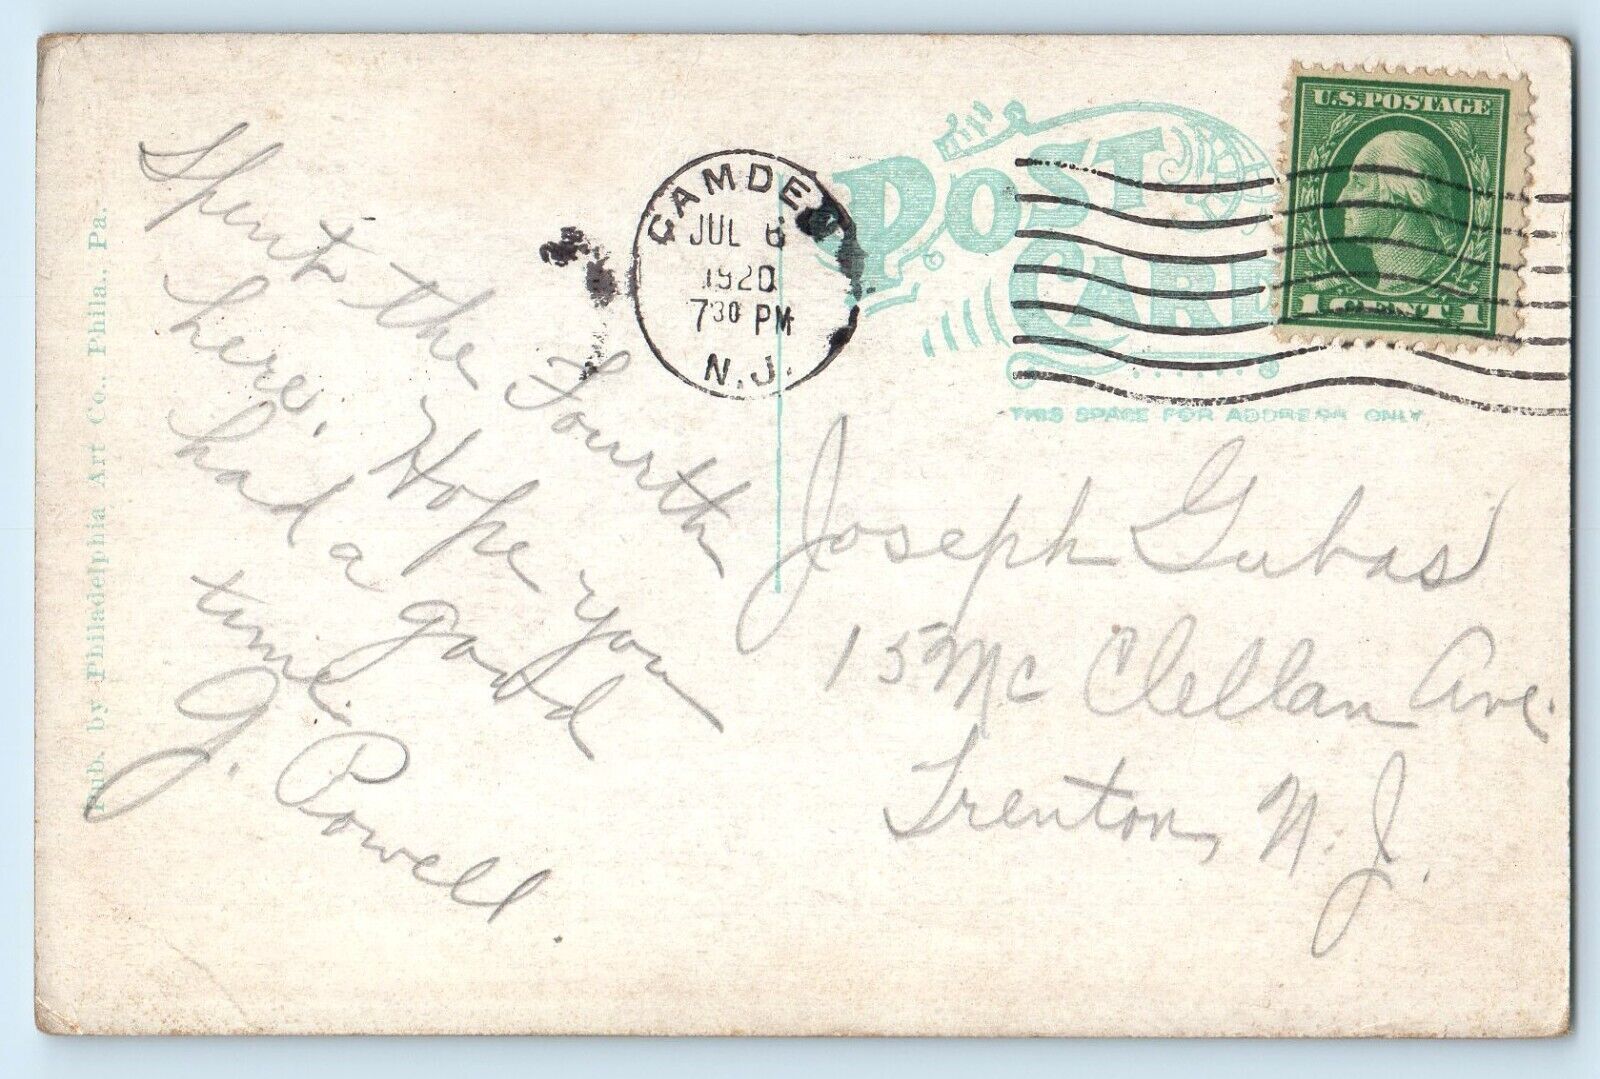 Pub. by Philadelphia Art Co., Phila., Pa.
Spent the Fourth
here. Hope you
had a good
time.
G. Powell.
CAMDEN
JUL 6
1920
730 PM
N.J.
POST CARD
THIS SPACE FOR ADDRESS ONLY
U.S. POSTAGE
1 CENT 1
Joseph Gubas
15 Mc Clellan Ave.
Trenton, N. J.